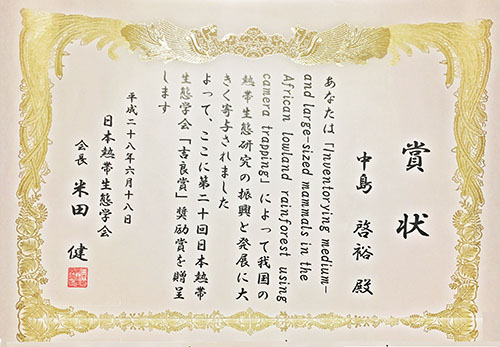 賞状
中島 啓裕 殿
あなたは「Inventorying medium-
and large-sized mammals in the
African lowland rainforest using
camera trapping」によって我国の
熱帯生態研究の振興と発展に大
きく寄与されました
よって、ここに第二十回日本熱帯
生態学会「吉良賞」奨励賞を贈呈
します
平成二十八年六月十八日
日本熱帯生態学会
会長 米田 健